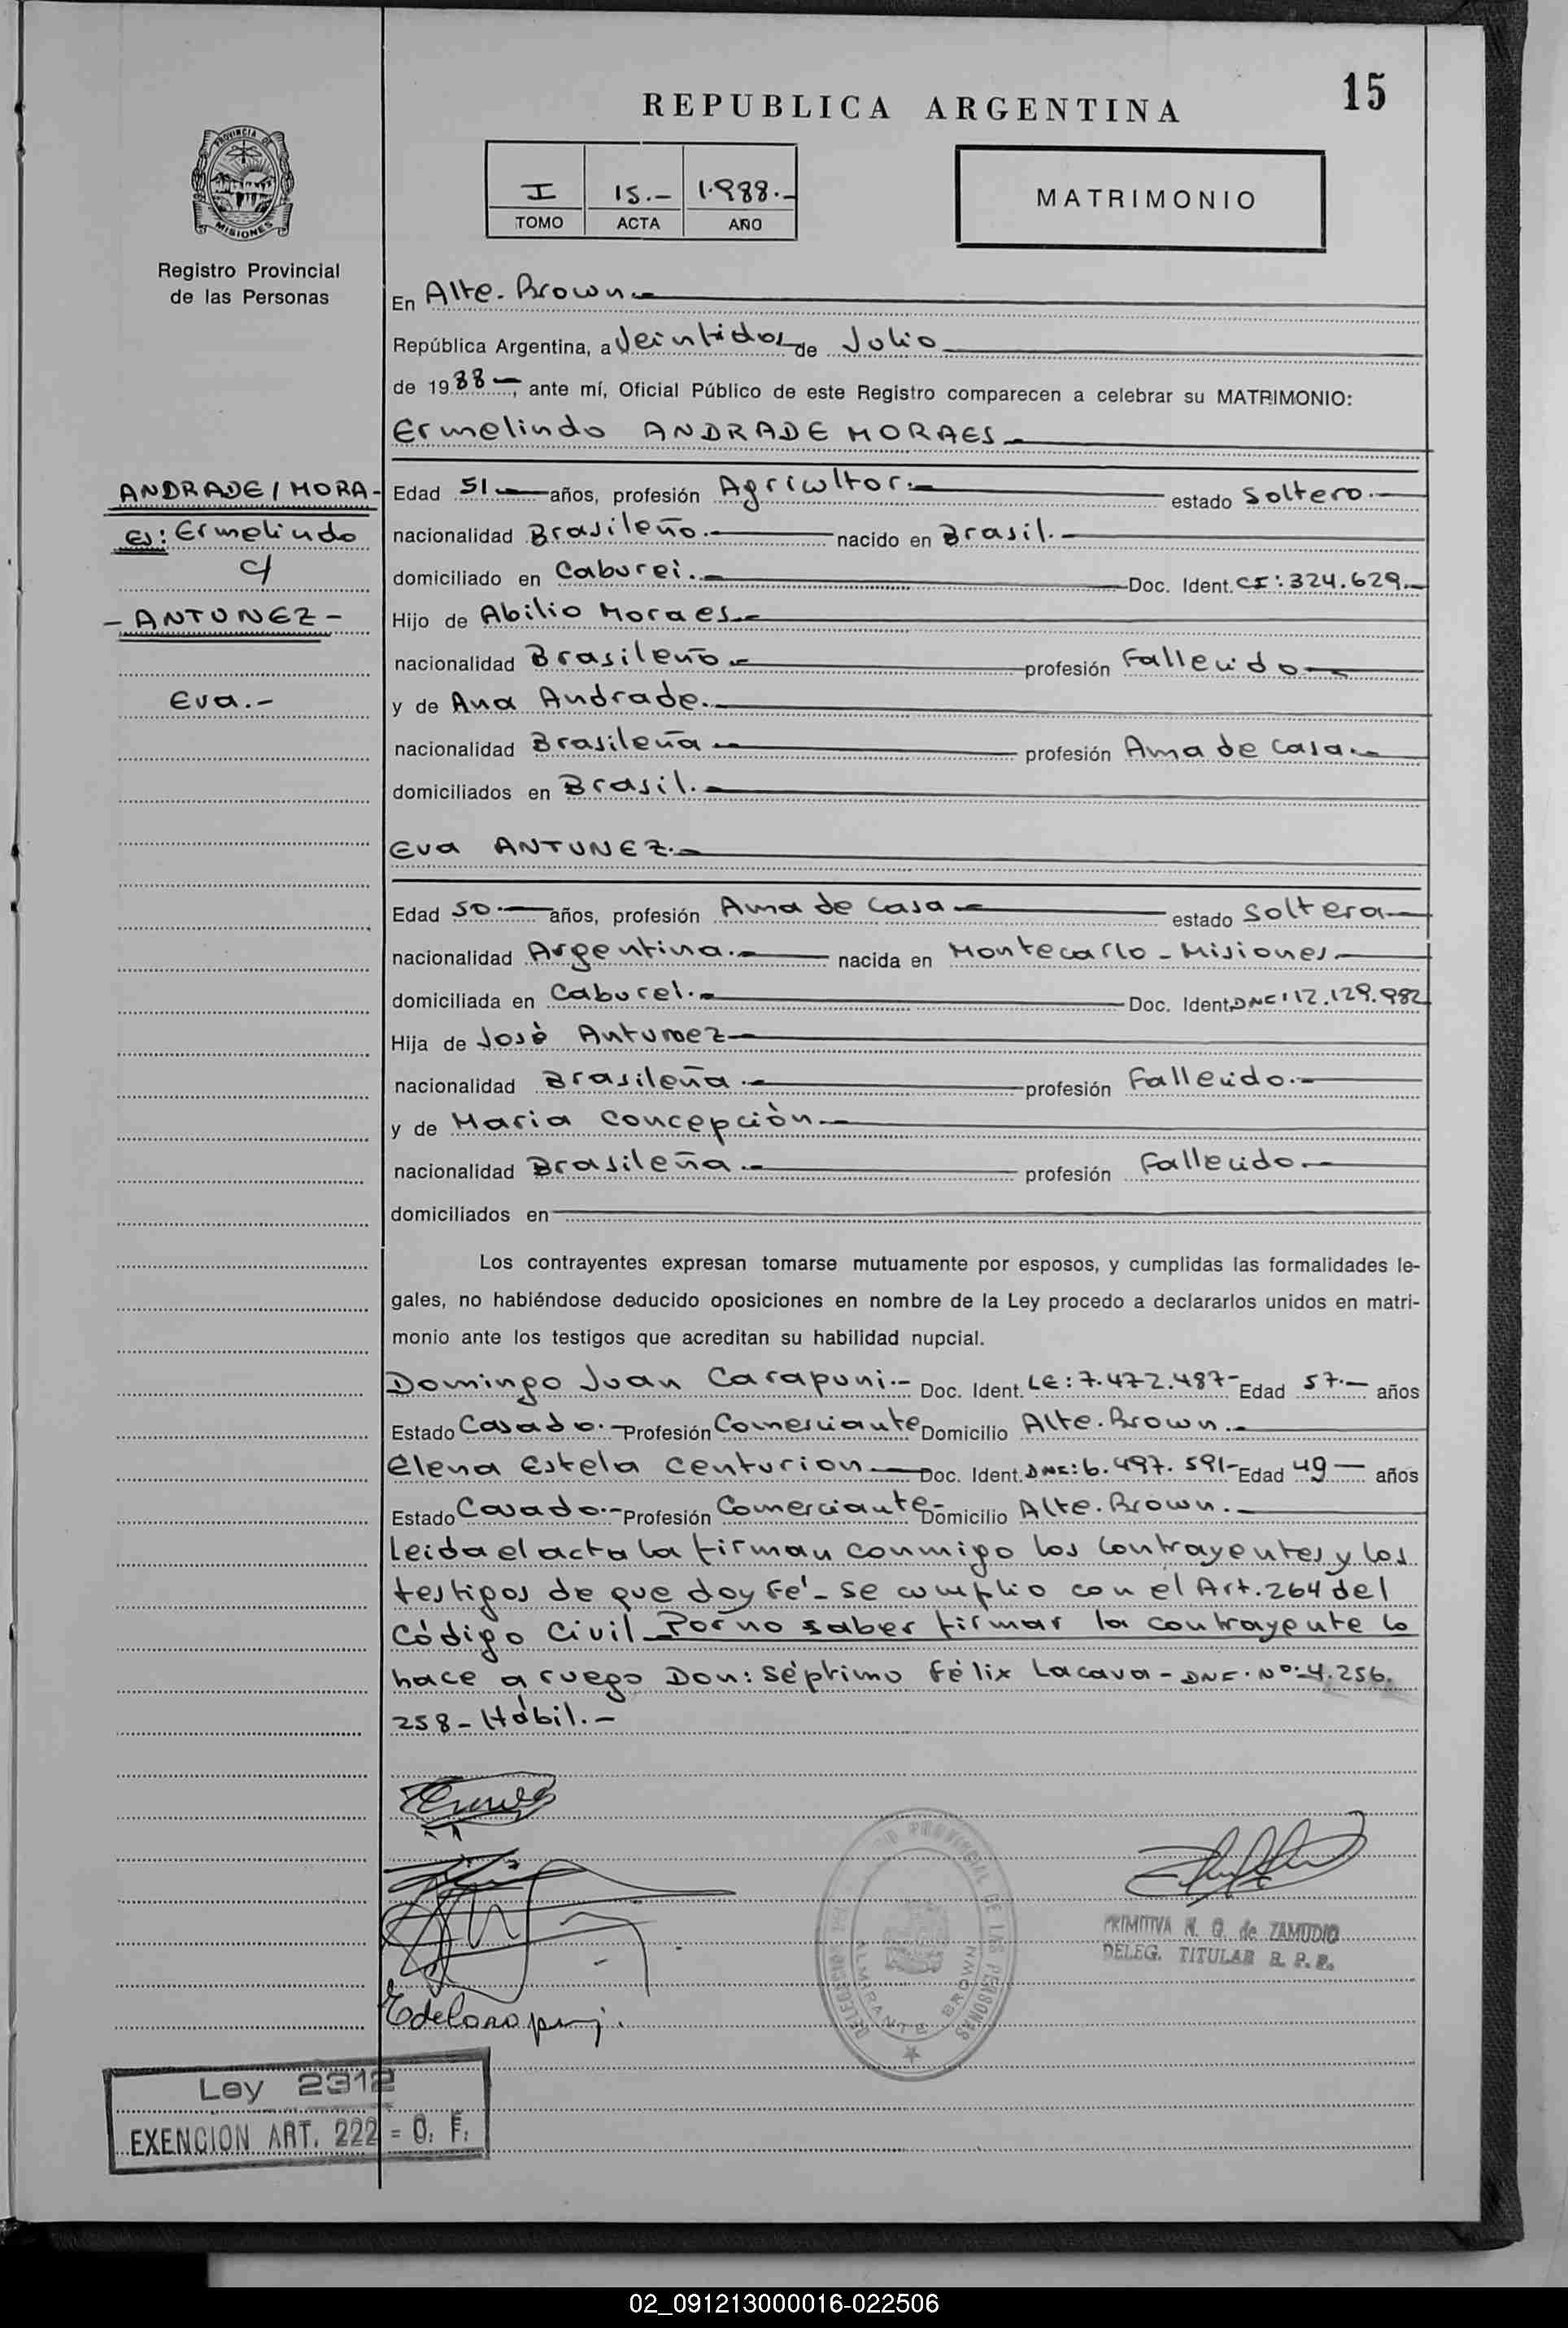 15
REPUBLICA ARGENTINA
PROVINCIA DE
MISIONES
I 15.- 1.988.-
TOMO ACTA AÑO
MATRIMONIO
Registro Provincial
de las Personas
En Alte. Brown.-
República Argentina, a Veintidos de Julio
de 1988-, ante mí, Oficial Público de este Registro comparecen a celebrar su MATRIMONIO:
Ermelindo ANDRADE MORAES.-
ANDRADE / MORA-
es: Ermelindo
c/
- ANTUNEZ -
Eva.-
Edad 51.- años, profesión Agricultor.- estado Soltero.-
nacionalidad Brasileño.- nacido en Brasil.-
domiciliado en Caburei.- Doc. Ident. CI: 324.629.-
Hijo de Abilio Moraes.-
nacionalidad Brasileño.- profesión Fallecido.-
y de Ana Andrade.-
nacionalidad Brasileña.- profesión Ama de Casa.-
domiciliados en Brasil.-
Eva ANTUNEZ.-
Edad 50.- años, profesión Ama de Casa.- estado Soltera-
nacionalidad Argentina.- nacida en Montecarlo - Misiones-
domiciliada en Caburei.- Doc. Ident. DNI: 12.129.982
Hija de José Antunez-
nacionalidad Brasileña.- profesión Fallecido.-
y de Maria Concepción.-
nacionalidad Brasileña.- profesión Fallecido.-
domiciliados en
Los contrayentes expresan tomarse mutuamente por esposos, y cumplidas las formalidades le-
gales, no habiéndose deducido oposiciones en nombre de la Ley procedo a declararlos unidos en matri-
monio ante los testigos que acreditan su habilidad nupcial.
Domingo Juan Carapuni.- Doc. Ident. LE: 7.472.487- Edad 57.- años
Estado Casado.- Profesión Comerciante Domicilio Alte. Brown.-
Elena Estela Centurion.- Doc. Ident. DNI: 6.497.591- Edad 49- años
Estado Casado.- Profesión Comerciante- Domicilio Alte. Brown.-
Leida el acta la firman conmigo los contrayentes y los
testigos de que doy Fe'- Se cumplio con el Art. 264 del
Código Civil- Por no saber firmar la contrayente lo
hace a ruego Don: Séptimo Félix Lacava - DNI. Nº: 4.256.
258 - Hábil.-
PROVINCIAL DE LAS PERSONAS
ALMIRANTE BROWN
PRIMITIVA N. G. de ZAMUDIO
DELEG. TITULAR R. P. P.
Ley 2312
EXENCION ART. 222 = O. F.
02_091213000016-022506